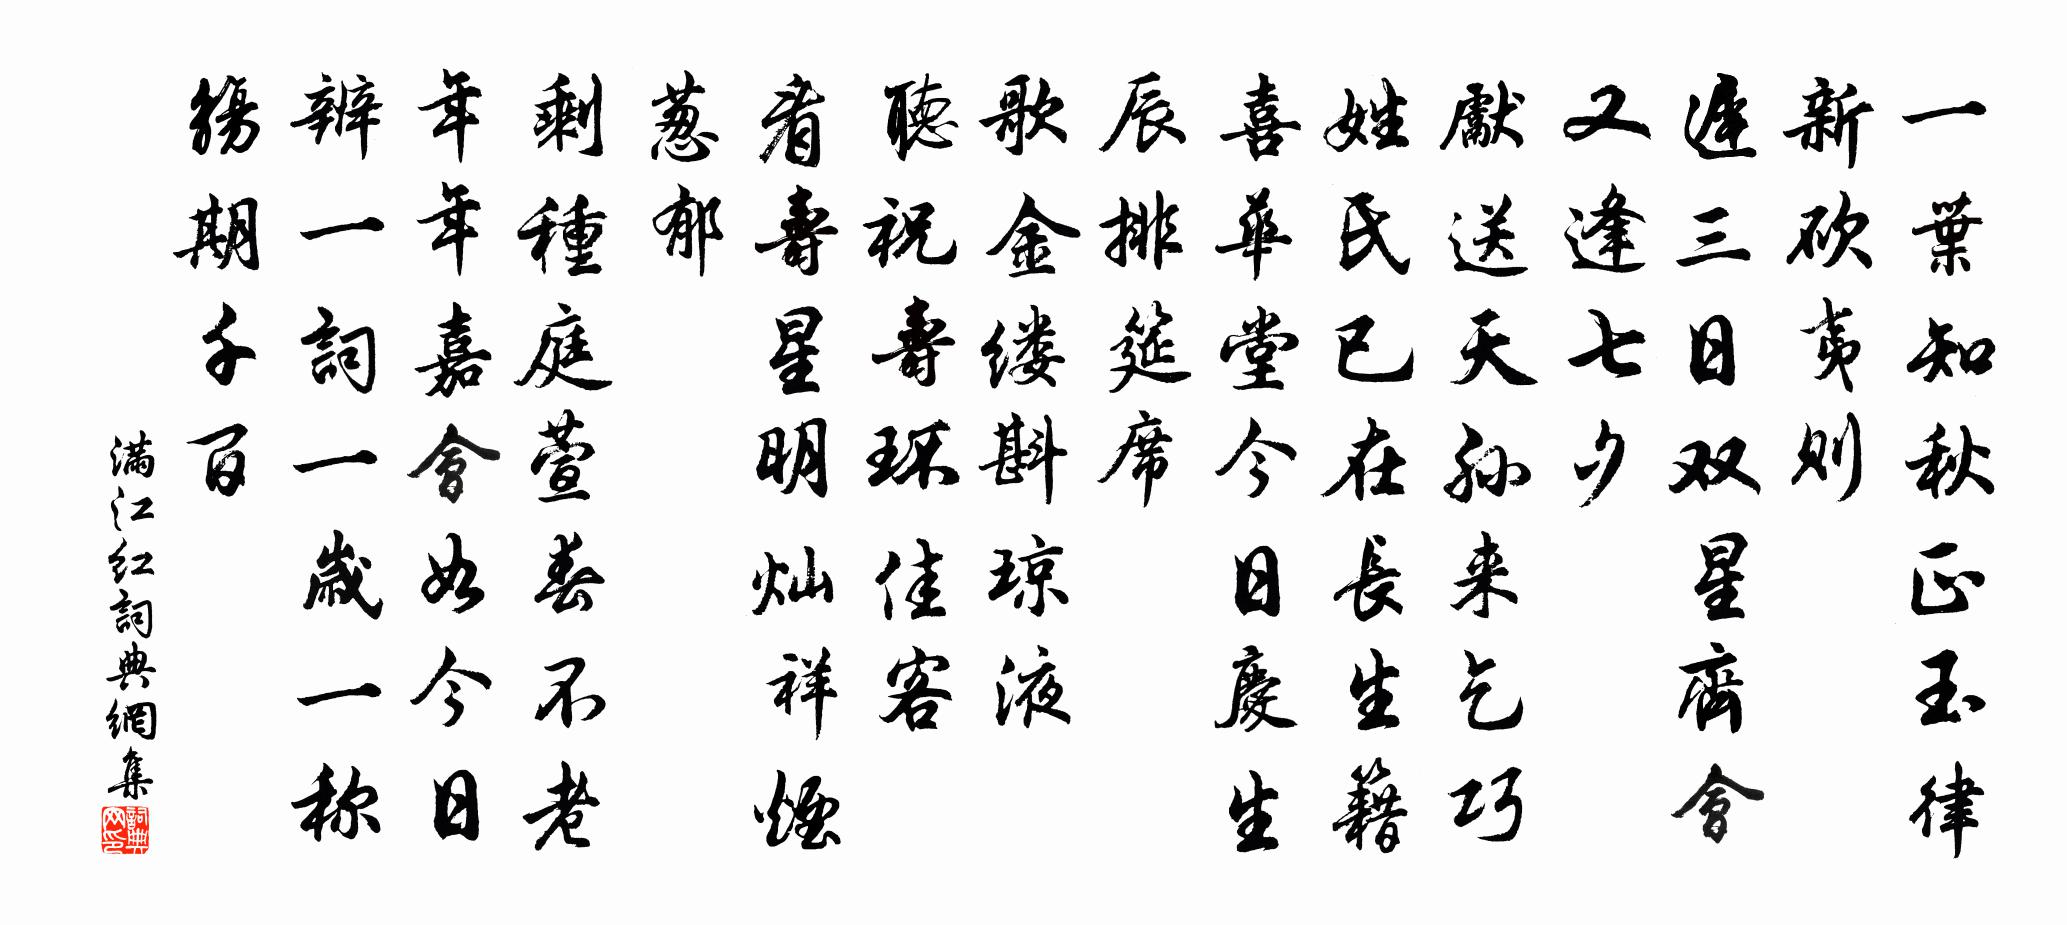 一葉知秋正玉律
新砍夷則
遲三日双星齊會
又逢七夕
獻送天孫来乞巧
姓氏已在長生籍
喜華堂今日慶生
辰排筵席
歌金缕斟琼液
聽祝壽环佳客
看壽星明灿祥煙
葱郁
剩種庭萱春不老
年年嘉會如今日
辦一詞一歲一称
觴期千百
满江红詞典網集
詞典网印